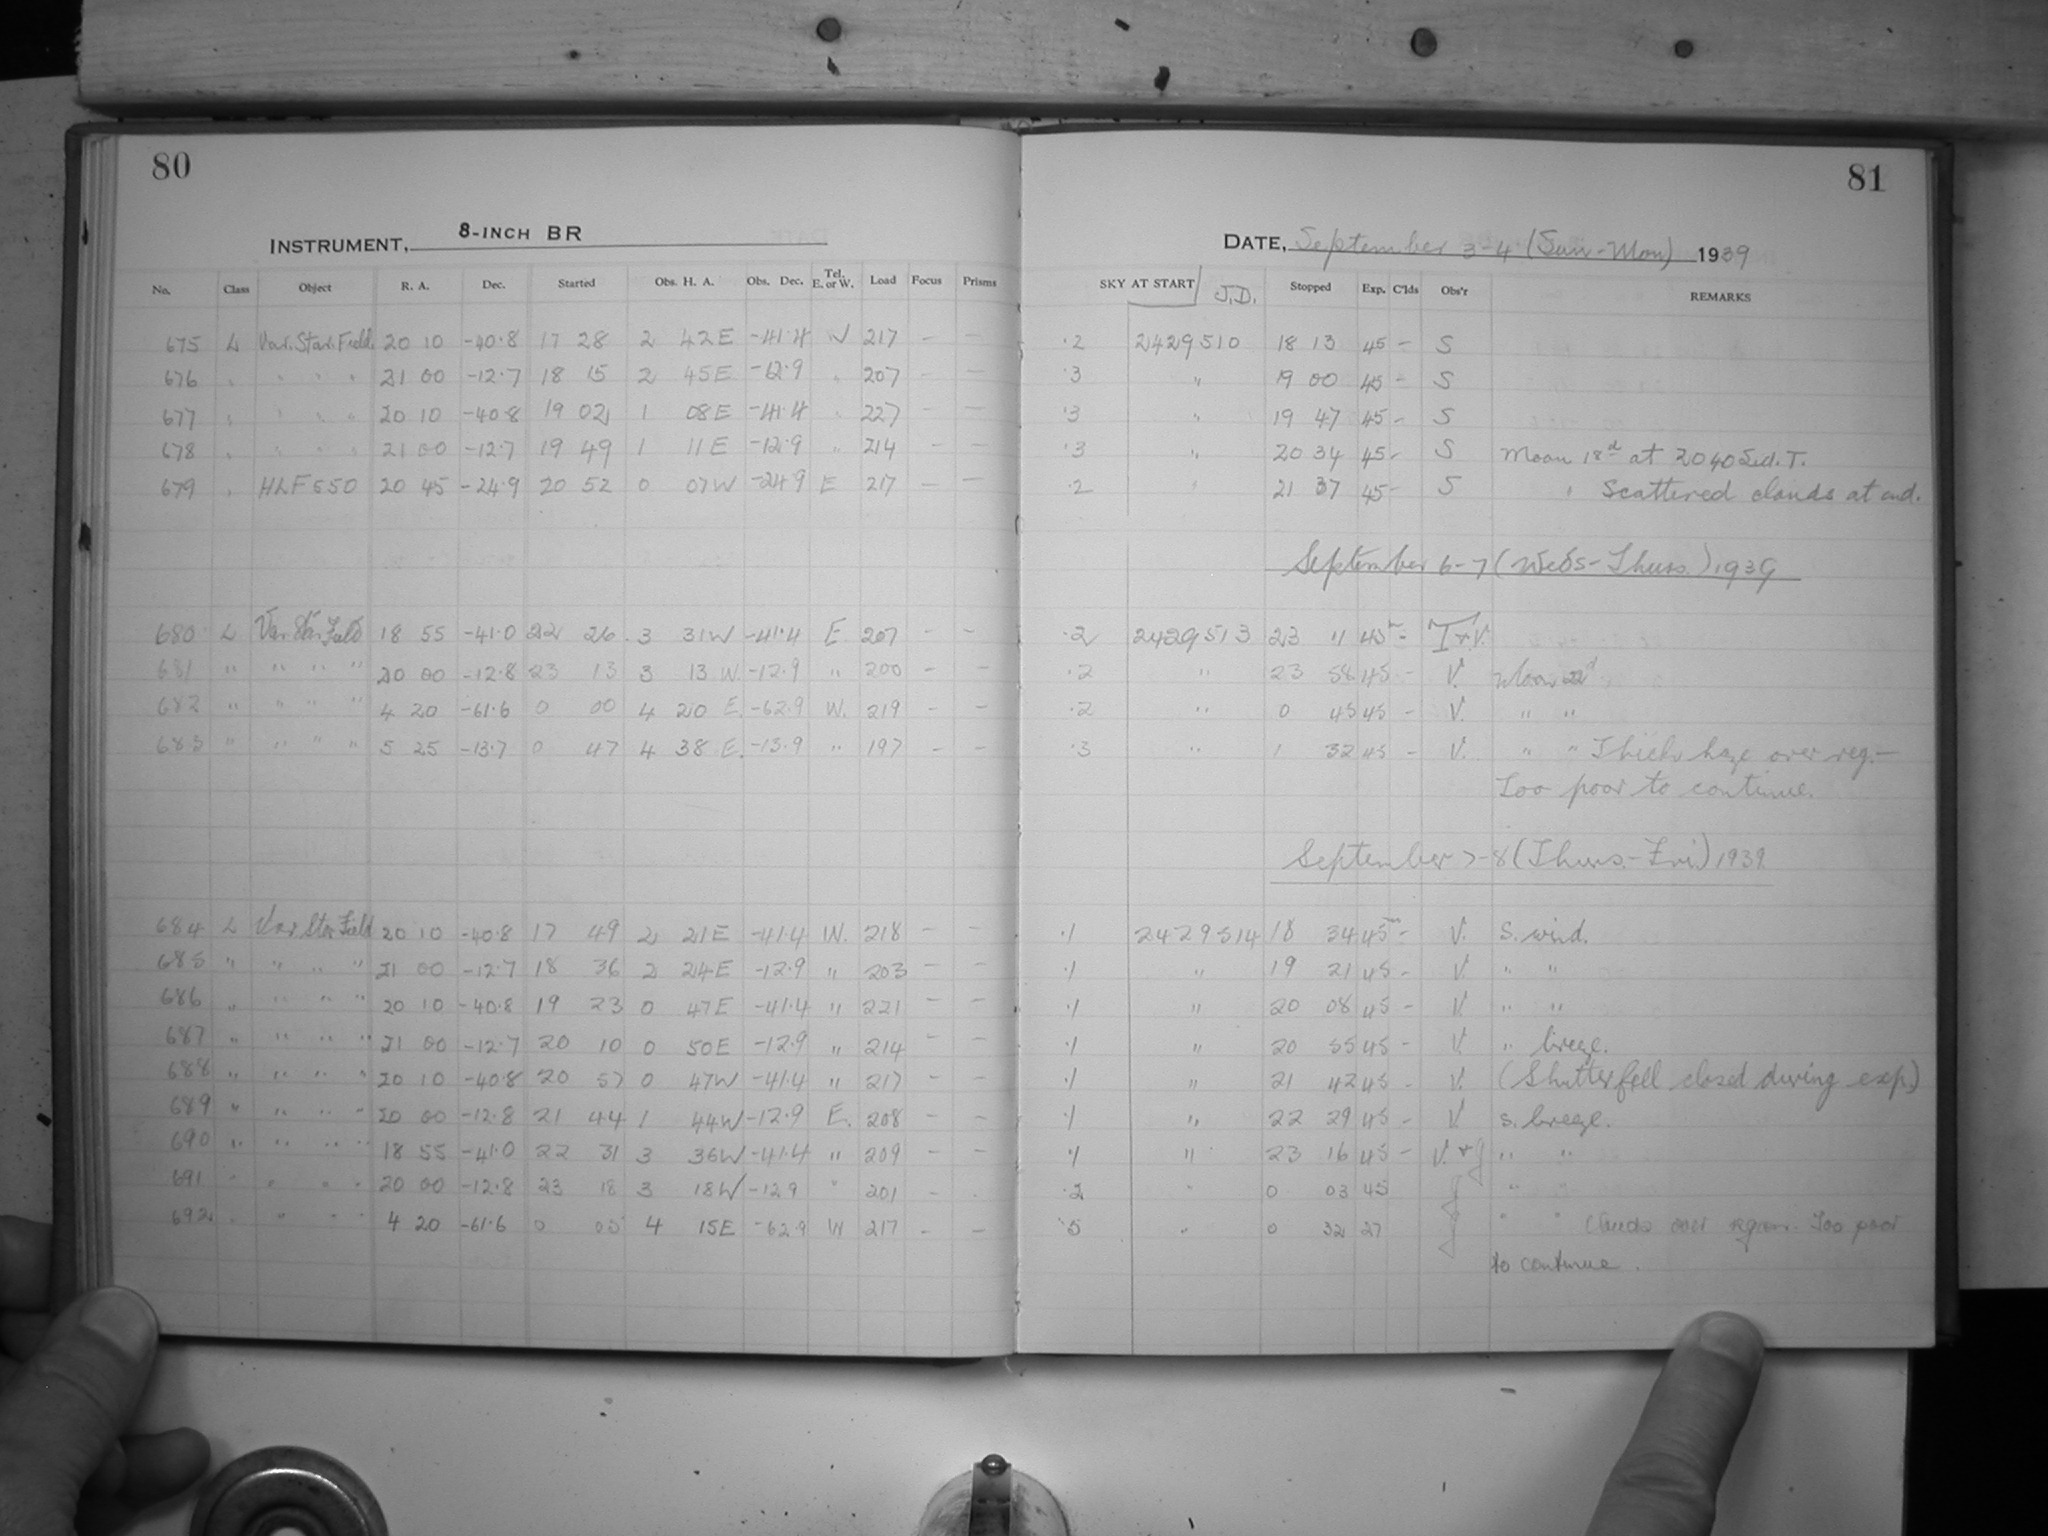 80
INSTRUMENT, 8-INCH BR
No. Class Object R. A. Dec. Started Obs. H. A. Obs. Dec. Tel. E. or W. Load Focus Prisms
675 L Var. Star. Field. 20 10 -40.8 17 28 2 42 E -41.4 W 217 - -
676 " " " " 21 00 -12.7 18 15 2 45 E -12.9 " 207 - -
677 " " " " 20 10 -40.8 19 02 1 08 E -41.4 " 227 - -
678 " " " " 21 00 -12.7 19 49 1 11 E -12.9 " 214 - -
679 " HLF 650 20 45 -24.9 20 52 0 07 W -24.9 E 217 - -
680 L Var Star Field 18 55 -41.0 22 26 3 31 W -41.4 E 207 - -
681 " " " " 20 00 -12.8 23 13 3 13 W. -12.9 " 200 - -
682 " " " " 4 20 -61.6 0 00 4 20 E. -62.9 W. 219 - -
683 " " " " 5 25 -13.7 0 47 4 38 E. -13.9 " 197 - -
684 L Var Star Field 20 10 -40.8 17 49 2 21 E -41.4 W. 218 - -
685 " " " " 21 00 -12.7 18 36 2 24 E -12.9 " 203 - -
686 " " " " 20 10 -40.8 19 23 0 47 E -41.4 " 221 - -
687 " " " " 21 00 -12.7 20 10 0 50 E -12.9 " 214 - -
688 " " " " 20 10 -40.8 20 57 0 47 W -41.4 " 217 - -
689 " " " " 20 00 -12.8 21 44 1 44 W -12.9 E. 208 - -
690 " " " " 18 55 -41.0 22 31 3 36 W -41.4 " 209 - -
691 " " " " 20 00 -12.8 23 18 3 18 W -12.9 " 201 - -
692 " " " " 4 20 -61.6 0 05 4 15 E -62.9 W 217 - -
81
DATE, September 3-4 (Sun-Mon) 1939
SKY AT START J.D. Stopped Exp. C'lds Obs'r REMARKS
.2 2429510 18 13 45 - S
.3 " 19 00 45 - S
.3 " 19 47 45 - S
.3 " 20 34 45 - S Moon 18d at 2040 Sid. T.
.2 " 21 37 45 - S " Scattered clouds at end.
September 6-7 (Weds-Thurs.) 1939
.2 2429513 23 11 45m - T+V.
.2 " 23 58 45 - V. Moon 22d.
.2 " 0 45 45 - V. " "
.3 " 1 32 45 - V. " " Thick haze over reg.-
Too poor to continue.
September 7-8 (Thurs-Fri.) 1939
.1 2429514 18 34 45m - V. S. wind.
.1 " 19 21 45 - V. " "
.1 " 20 08 45 - V. " "
.1 " 20 55 45 - V. " breeze.
.1 " 21 42 45 - V. (Shutter fell closed during exp.)
.1 " 22 29 45 - V. S. breeze.
.1 " 23 16 45 - V. + J " "
.2 " 0 03 45 " "
.5 " 0 32 27 " " Clouds over region. Too poor
to continue.